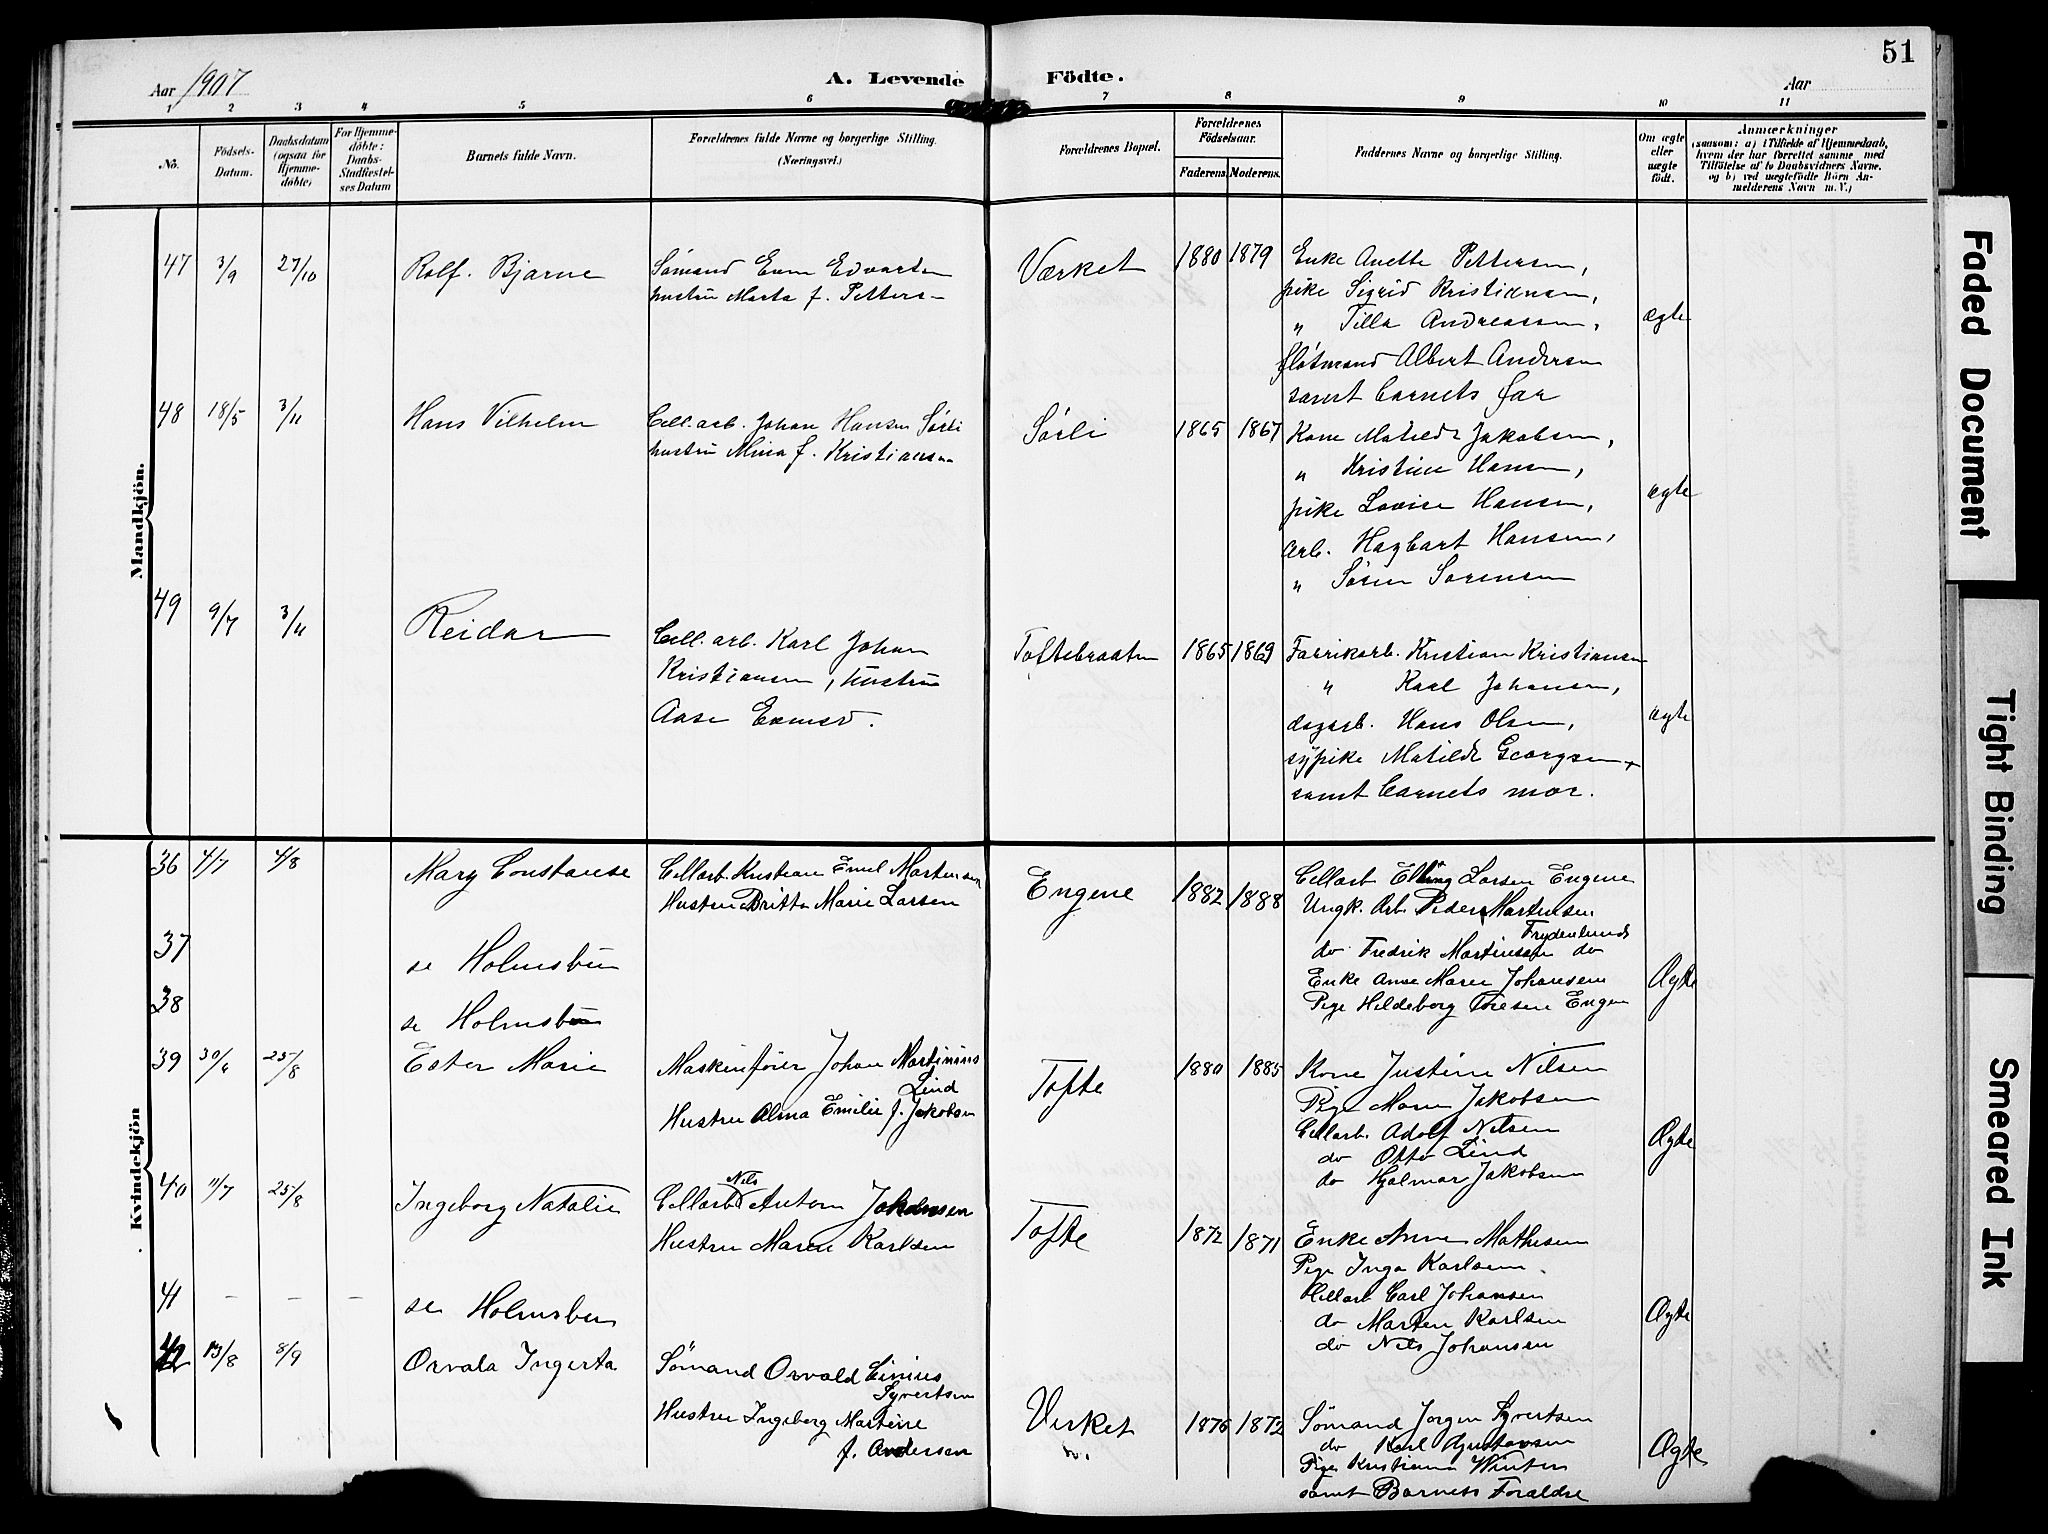 51
Aar 1907
A. Levende Födte.
Aar
1 2 3 4 5 6 7 8 9 10 11
No.
Födsels-Datum.
Daabsdatum (ogsaa for Hjemme-döbte)
For Hjemme-döbte: Daabs-Stadfæstel-ses Datum
Barnets fulde Navn.
Forældrenes fulde Navne og borgerlige Stilling. (Næringsvei.)
Forældrenes Bopæl.
Forældrenes Födselsaar.
Faderens. Moderens.
Faddernes Navne og borgerlige Stilling.
Om ægte eller uægte født.
Anmærkninger
(saasom: a) i Tilfælde af Hjemmedaab,
hvem der har forrettet samme med
Tilföielse af to Daabsvidners Navne.
og b) ved uægtefödte Börn An-
melderens Navn m. V.)
Mandkjön.
47 3/9 27/10 Rolf. Bjarne
Sömand Even Edvartsen
hustru Marta f. Petters-
Værket 1880 1879
Enke Anette Pettersen,
pike Sigrid Kristiansen,
„ Tilla Andreassen,
fløtmand Albert Andersen
samt barnets far
ægte
48 18/5 3/11 Hans Vilhelm
Cell.arb. Johan Hansen Sørli
hustru Mina f. Kristiansen
Sørli 1865 1867
Kone Matilde Jakobsen,
„ Kristine Hansen,
pike Lovise Hansen,
arb. Hagbart Hansen,
„ Søren Sørensen
ægte
49 9/7 3/11 Reidar
Cell. arb. Karl Johan
Kristiansen, hustru
Aase
Toftebraaten 1865 1869
Fabrikarb. Kristian Kristiansen
„ Karl Johansen,
dagarb. Hans Olsen,
sypike Matilde Georgsen
samt barnets mor.
ægte
Kvindekjön
36 4/7 4/8 Mary Constanse
Cellarb. Kristian Emil Martinsen
Hustru Britta Marie Larsen
Engene 1882 1888
Cellarb Elling Larsen Engene
Ungk. Arb. Peder Martinsen
Frydenlund
do Fredrik Martinsen do
Enke Anne Marie Johansen
Pige Hildeborg Toresen Engen
Ægte
37 se Holmsbu
38 se Holmsbu
39 30/6 25/8 Ester Marie
Maskinfører Johan Martinius
Lind
Hustru Alma Emilie f. Jakobsen
Tofte 1880 1885
Kone Justine Nilsen
Pige Marie Jakobsen
Cellarb. Adolf Nilsen
do Otto Lind
do Hjalmar Jakobsen
Ægte
40 11/7 25/8 Ingeborg Natalie
Nils
Cellarb Anton Johansen
Hustru Maren Karlsen
Tofte 1872 1871
Enke Anne Mathisen
Pige Inga Karlsen
Cellarb Carl Johansen
do Marten Karlsen
do Nils Johansen
Ægte
41 – – – se Holmsbu
42 13/8 8/9 Orvala Ingerta
Sømand Orvald
Syvertsen
Hustru Ingeborg Martine
f. Andersen
Virket 1876 1872
Sømand Jørgen Syvertsen
do Karl Gustavsen
Pige Kristiana Winter
samt Barnets Foraldre
Ægte
Faded Document
Tight Binding
Smeared Ink